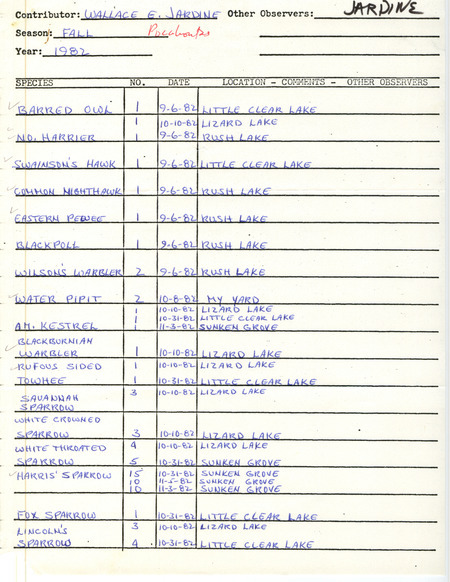 JARDINE
Contributor: WALLACE E. JARDINE Other Observers:
Season: FALL Pocahontas
Year: 1982
SPECIES NO. DATE LOCATION - COMMENTS - OTHER OBSERVERS
BARRED OWL 1 9-6-82 LITTLE CLEAR LAKE
1 10-10-82 LIZARD LAKE
NO. HARRIER 1 9-6-82 RUSH LAKE
SWAINSON'S HAWK 1 9-6-82 LITTLE CLEAR LAKE
COMMON NIGHTHAWK 1 9-6-82 RUSH LAKE
EASTERN PEWEE 1 9-6-82 RUSH LAKE
BLACKPOLL 1 9-6-82 RUSH LAKE
WILSON'S WARBLER 2 9-6-82 RUSH LAKE
WATER PIPIT 2 10-8-82 MY YARD
1 10-10-82 LIZARD LAKE
1 10-31-82 LITTLE CLEAR LAKE
AM. KESTREL 1 11-3-82 SUNKEN GROVE
BLACKBURNIAN
WARBLER 1 10-10-82 LIZARD LAKE
RUFOUS SIDED 1 10-10-82 LIZARD LAKE
TOWHEE 1 10-31-82 LITTLE CLEAR LAKE
SAVANNAH 3 10-10-82 LIZARD LAKE
SPARROW
WHITE CROWNED
SPARROW 3 10-10-82 LIZARD LAKE
WHITE THROATED 4 10-10-82 LIZARD LAKE
SPARROW 5 10-31-82 SUNKEN GROVE
HARRIS' SPARROW 15 10-31-82 SUNKEN GROVE
10 11-5-82 SUNKEN GROVE
10 11-3-82 SUNKEN GROVE
FOX SPARROW 1 10-31-82 LITTLE CLEAR LAKE
LINCOLN'S 3 10-10-82 LIZARD LAKE
SPARROW 4 10-31-82 LITTLE CLEAR LAKE